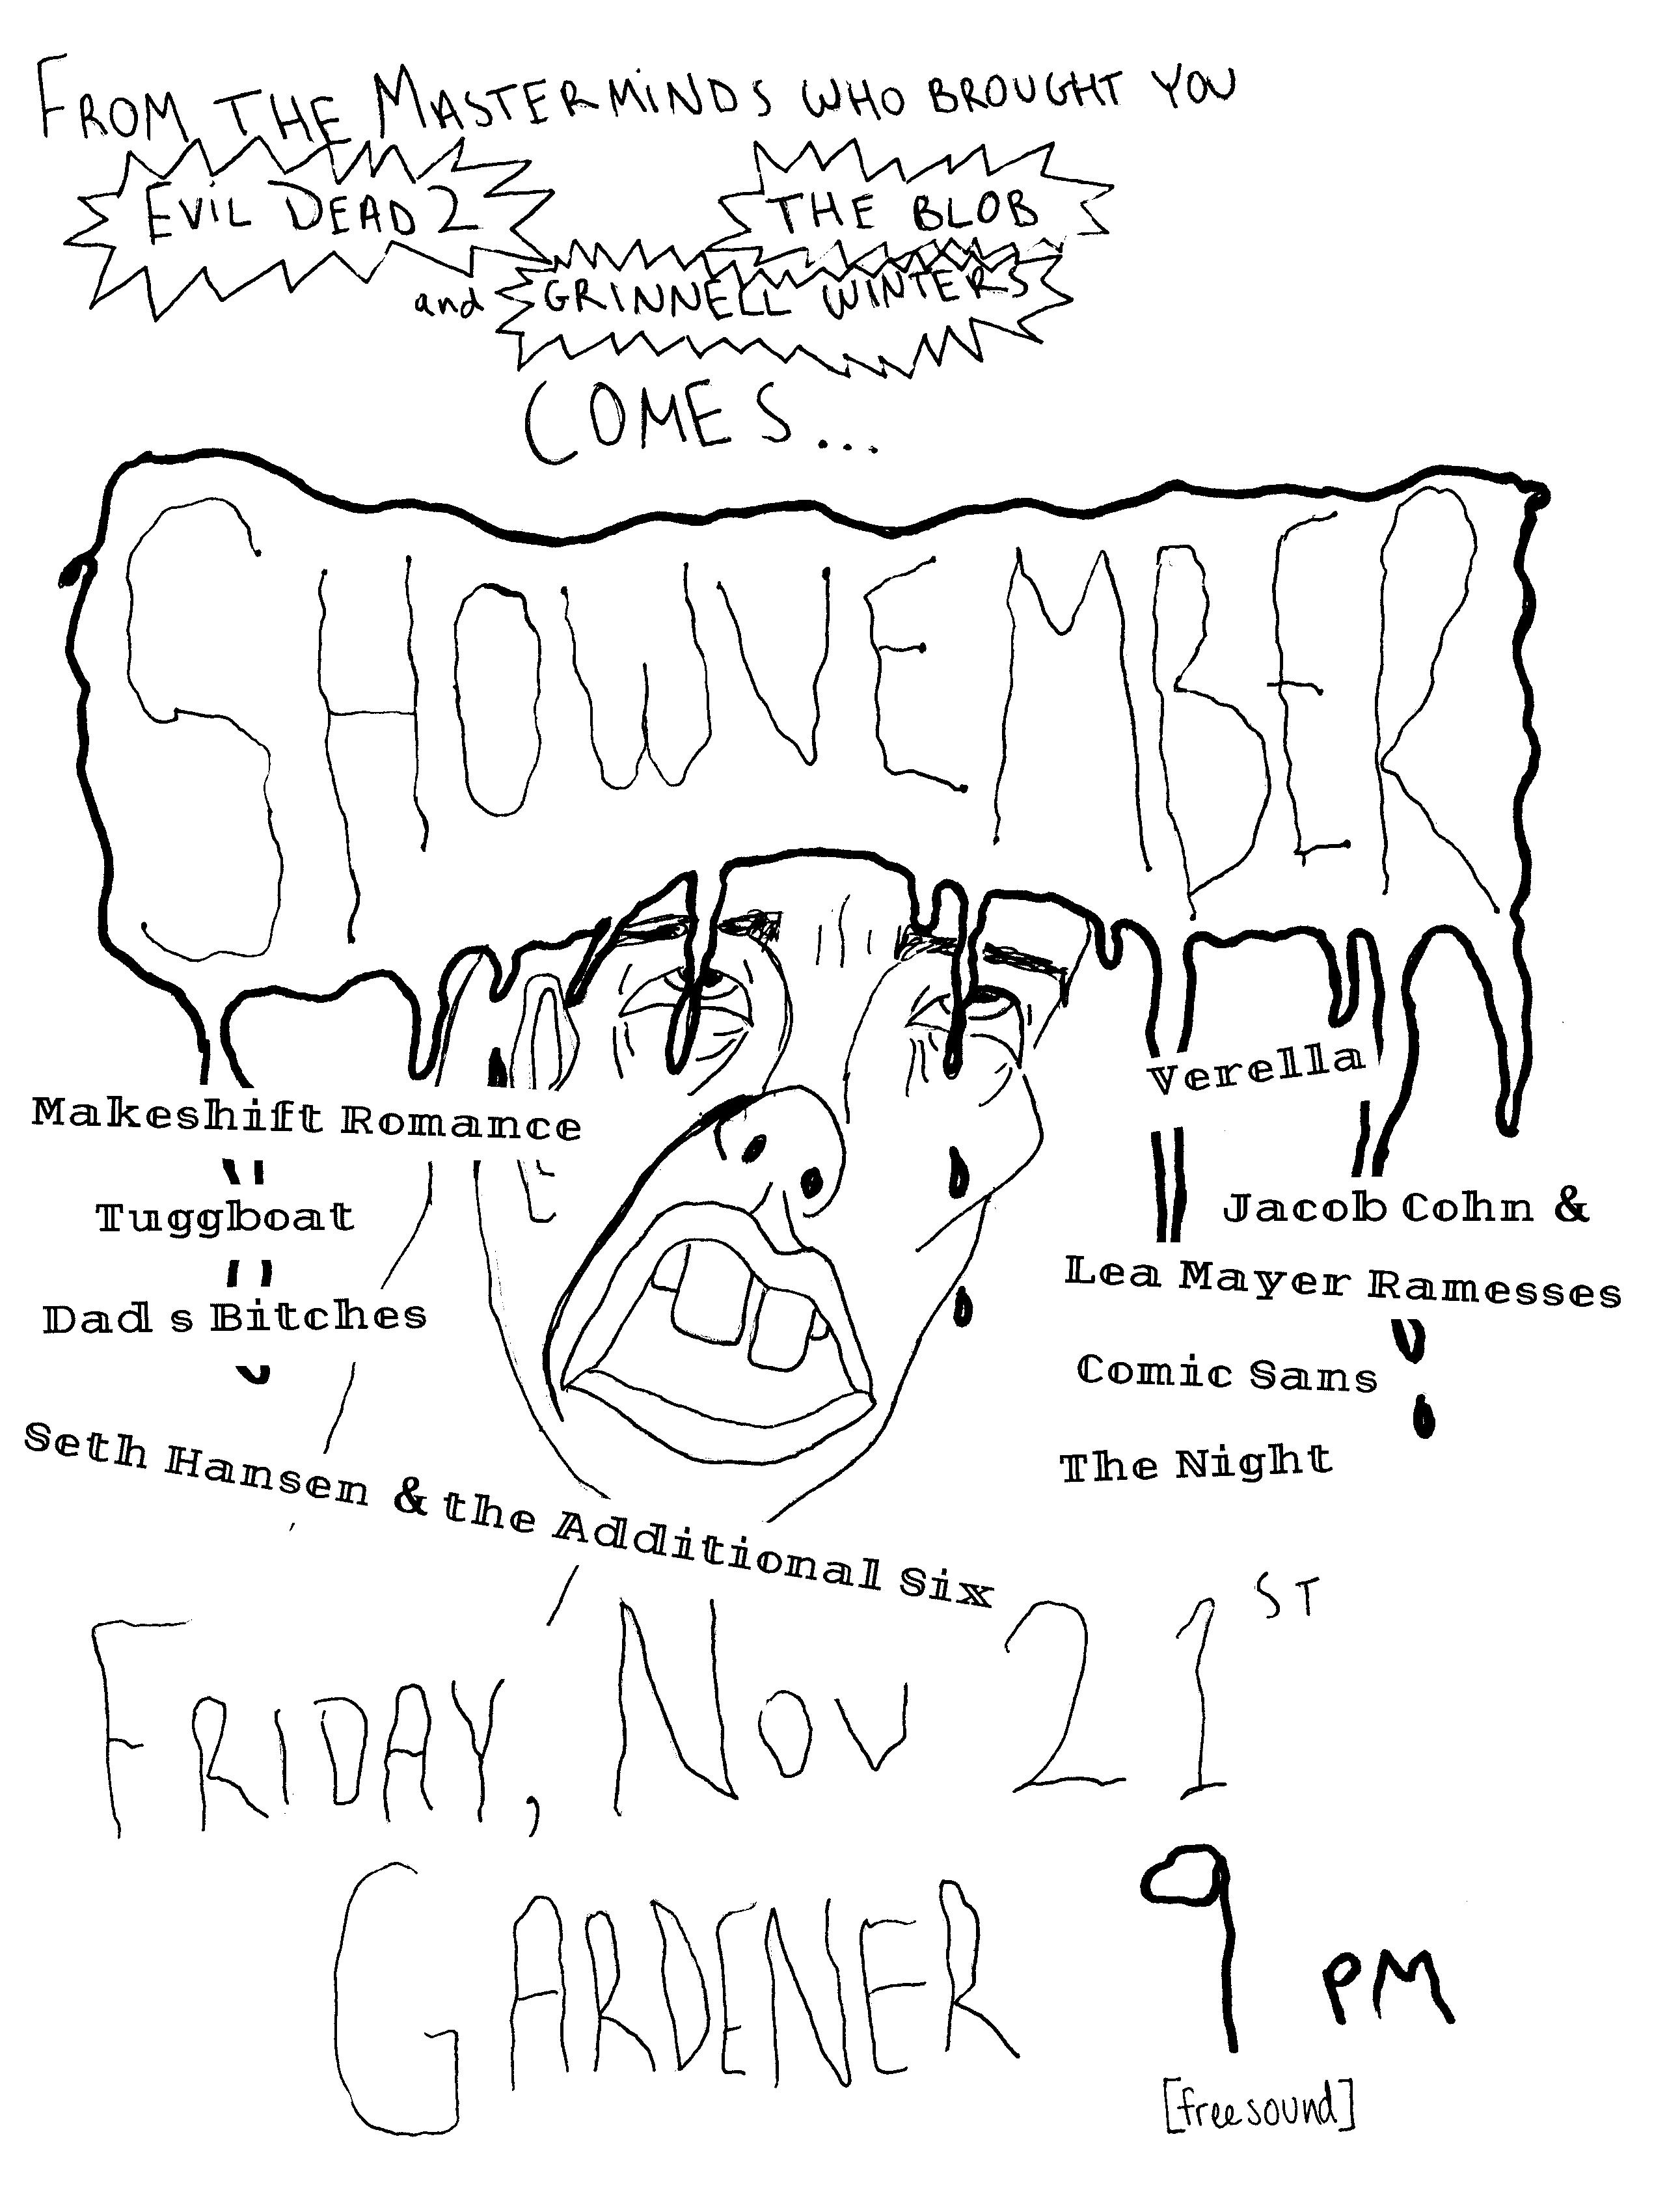 FROM THE MASTERMINDS WHO BROUGHT YOU
EVIL DEAD 2
THE BLOB
and GRINNELL WINTERS
COMES...
SHOWVEMBER
Makeshift Romance
Tuggboat
Dad s Bitches
Seth Hansen & the Additional Six
Verella
Jacob Cohn &
Lea Mayer Ramesses
Comic Sans
The Night
FRIDAY, NOV 21ST
GARDENER 9 PM
[freesound]